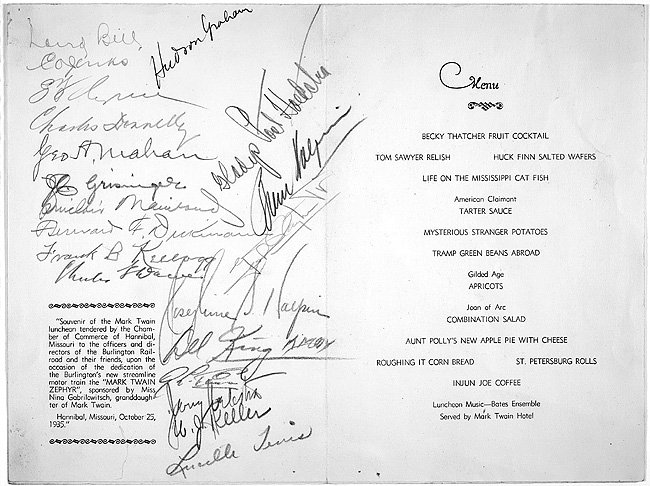 Hudson Graham
Charles Donnelly
Geo A. Mahan
Grisinger
Bernard F. Dickmann
Frank B Kellogg
Josephine S. Halpin
Del King
W. J. Keller
Lucille Lewis
"Souvenir of the Mark Twain
luncheon tendered by the Cham-
ber of Commerce of Hannibal,
Missouri to the officers and di-
rectors of the Burlington Rail-
road and their friends, upon the
occasion of the dedication of
the Burlington's new streamline
motor train the "MARK TWAIN
ZEPHYR", sponsored by Miss
Nina Gabrilowitsch, granddaugh-
ter of Mark Twain.
Hannibal, Missouri, October 25,
1935."
Menu
BECKY THATCHER FRUIT COCKTAIL
TOM SAWYER RELISH HUCK FINN SALTED WAFERS
LIFE ON THE MISSISSIPPI CAT FISH
American Claimant
TARTER SAUCE
MYSTERIOUS STRANGER POTATOES
TRAMP GREEN BEANS ABROAD
Gilded Age
APRICOTS
Joan of Arc
COMBINATION SALAD
AUNT POLLY'S NEW APPLE PIE WITH CHEESE
ROUGHING IT CORN BREAD ST. PETERSBURG ROLLS
INJUN JOE COFFEE
Luncheon Music—Bates Ensemble
Served by Mark Twain Hotel